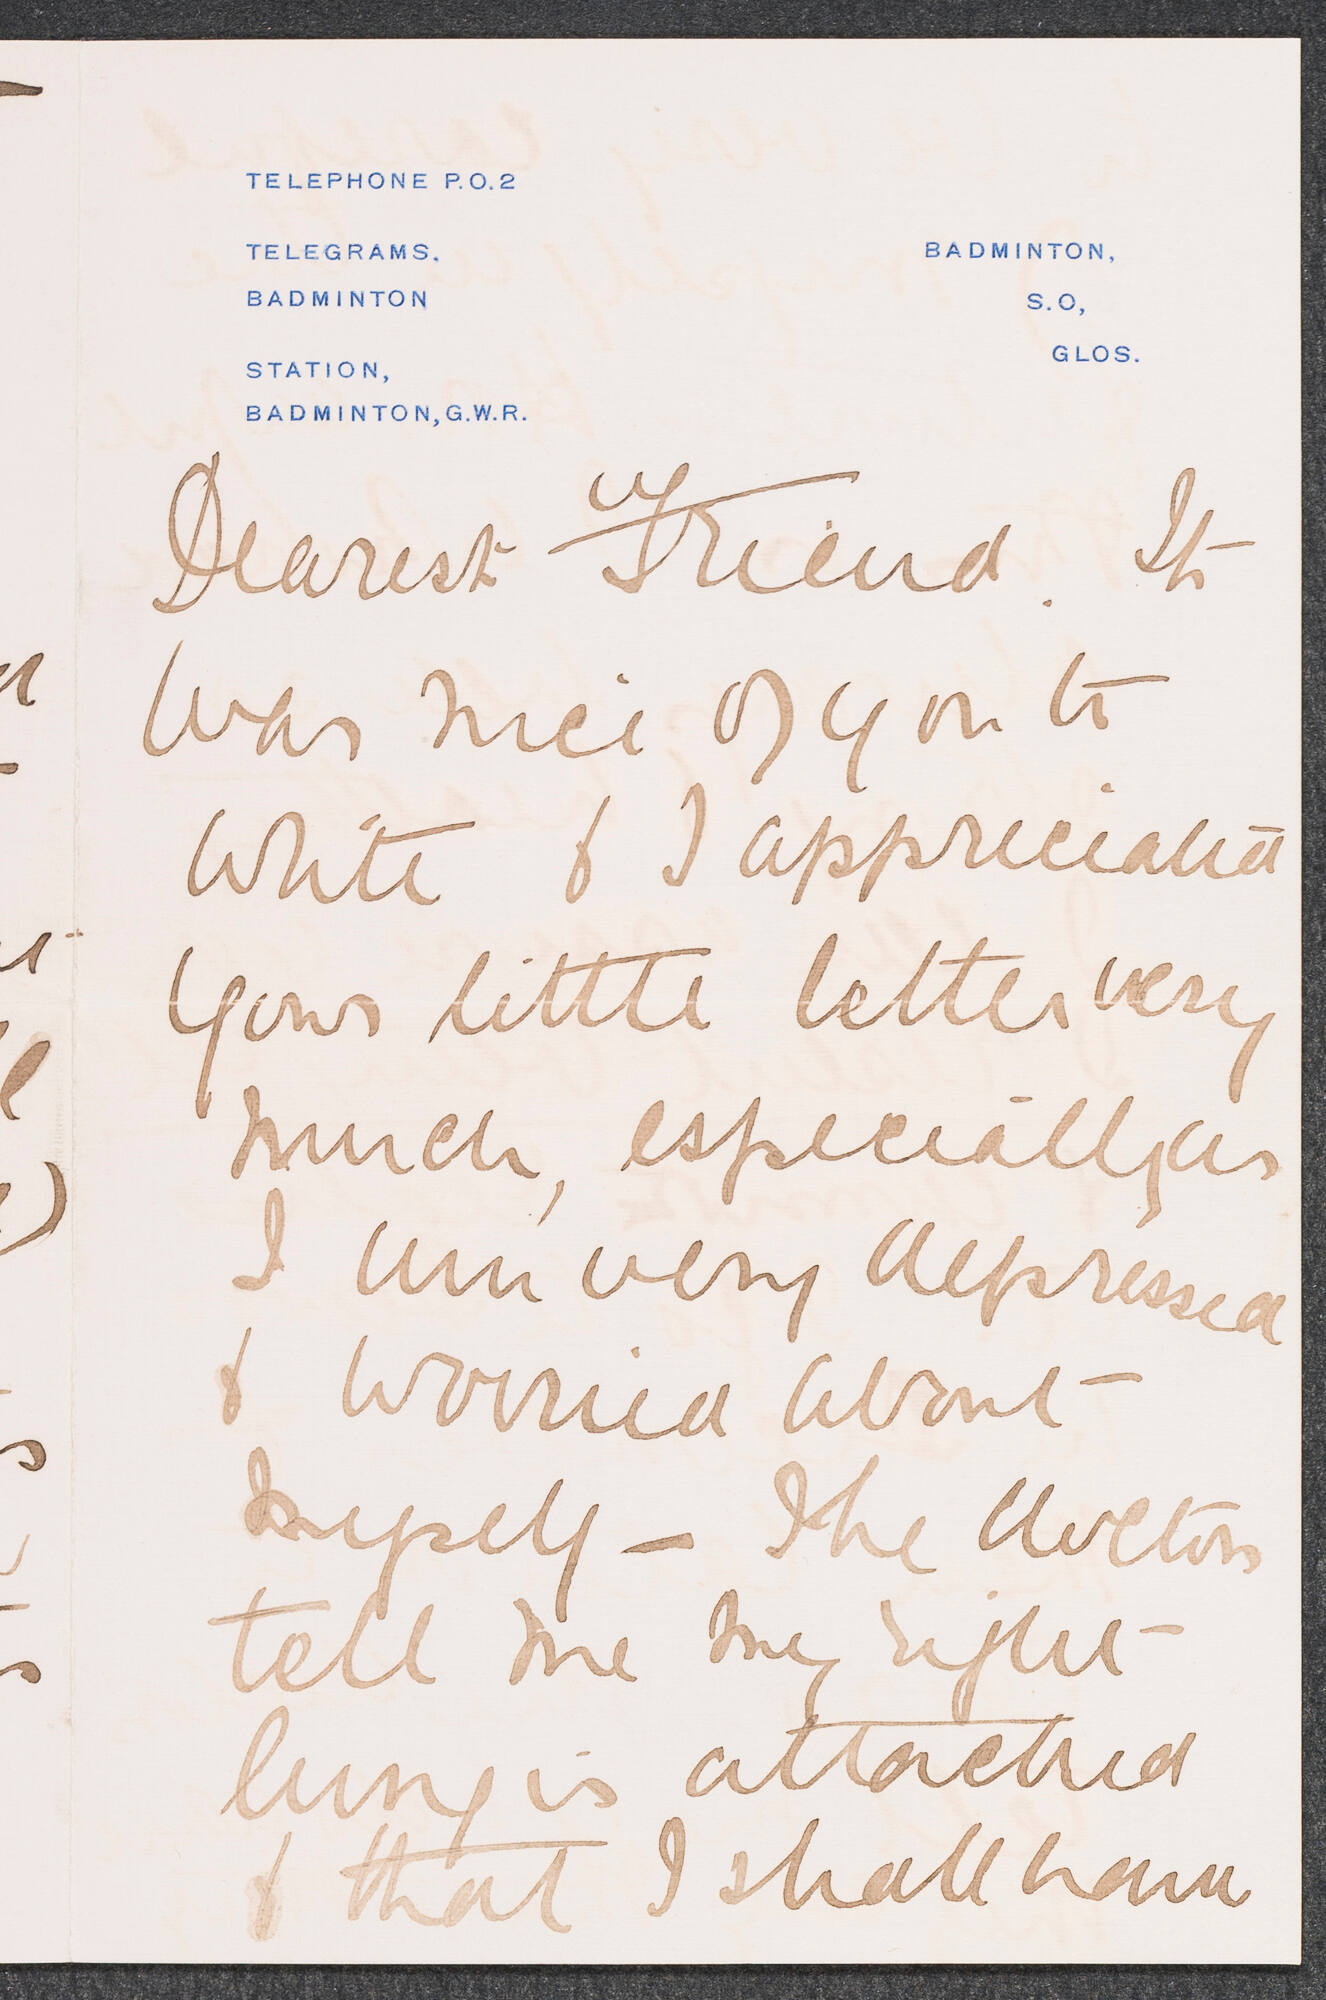 TELEPHONE P.O.2
TELEGRAMS.
BADMINTON
STATION,
BADMINTON, G.W.R.
BADMINTON,
S.O,
GLOS.
Dearest Friend. It
was nice of you to
write & I appreciated
your little letter very
much, especially as
I am very depressed
& worried about
myself – The doctors
tell me my right
lung is attacked
& that I shall have